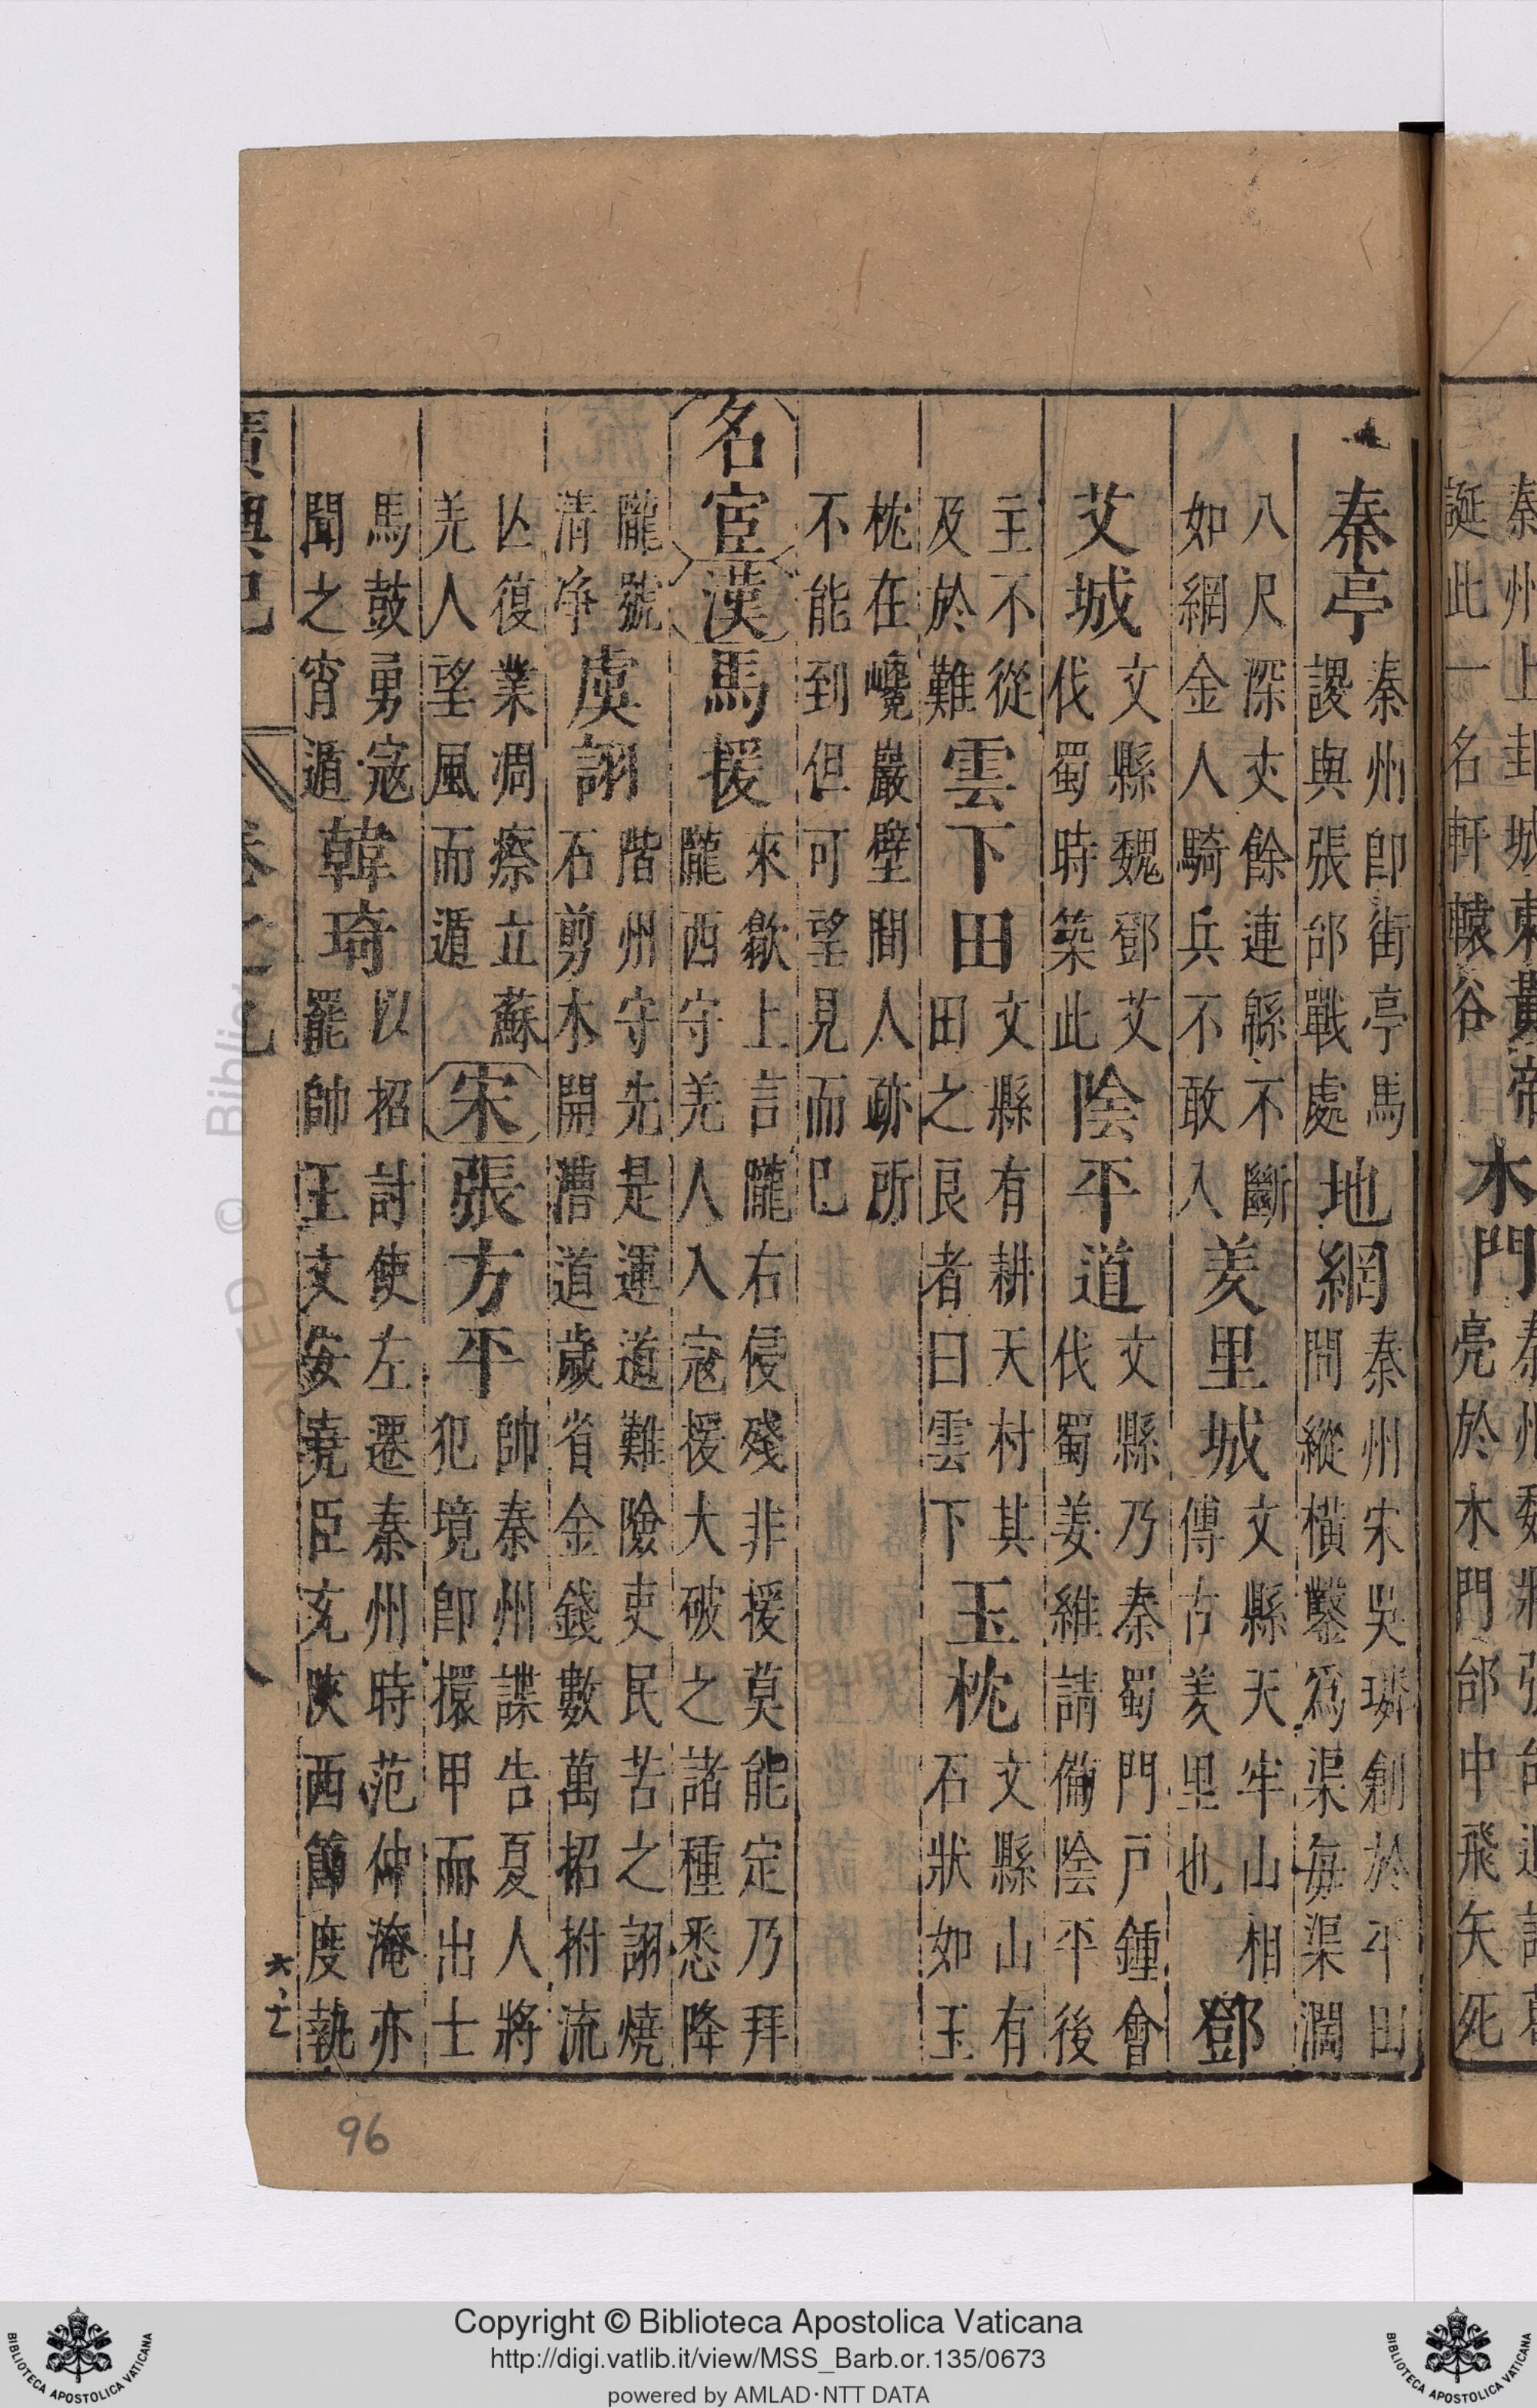 秦州上邽城東黃帝誕此一名軒轅谷木門秦州魏將張郃追諸葛亮於木門郃中飛矢死
秦亭秦州即街亭馬謖與張郃戰處地網秦州宋吳璘創於平田間縱橫鑿為渠每渠濶
八尺深丈餘連緜不斷如網金人騎兵不敢入羑里城文縣天牢山相傳古羑里也鄧
艾城文縣魏鄧艾伐蜀時築此陰平道文縣乃秦蜀門戶鍾會伐蜀姜維請備陰平後
主不從及於難雲下田文縣有耕天村其田之良者曰雲下玉枕文縣山有石狀如玉
枕在巉巖壁間人跡所不能到但可望見而已
名宦漢馬援來歙上言隴右侵殘非援莫能定乃拜隴西守羌人入寇援大破之諸種悉降
隴號清净虞詡階州守先是運道難險吏民苦之詡燒石剪木開漕道歲省金錢數萬招拊流
亾復業凋瘵立蘇羌人望風而遁宋張方平帥秦州諜告夏人將犯境即擐甲而出士
馬鼓勇寇聞之宵遁韓琦以招討使左遷秦州時范仲淹亦罷帥王文安堯臣充陜西節度執
廣輿記 卷之
96
Copyright © Biblioteca Apostolica Vaticana
http://digi.vatlib.it/view/MSS_Barb.or.135/0673
powered by AMLAD·NTT DATA
BIBLIOTECA APOSTOLICA VATICANA
BIBLIOTECA APOSTOLICA VATICANA